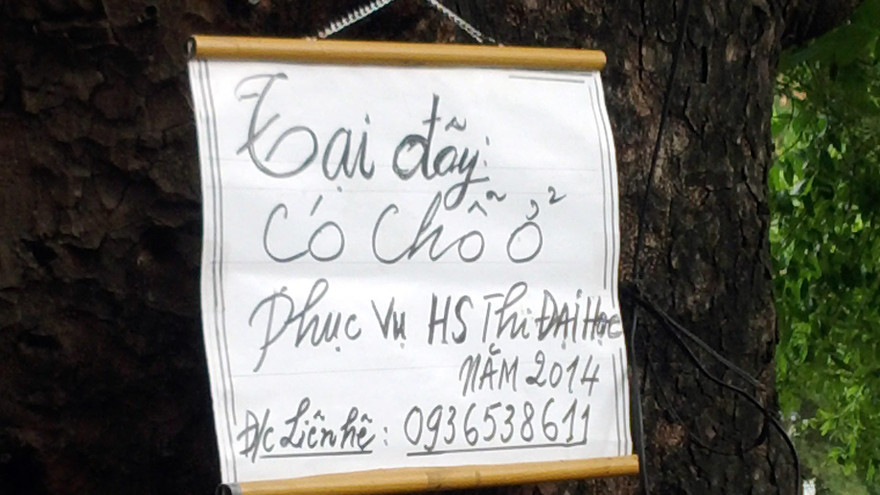 Tại đây:
Có Chỗ ở
Phục vụ HS Thi ĐẠI HỌC
NĂM 2014
Đ/c Liên hê: 0936538611